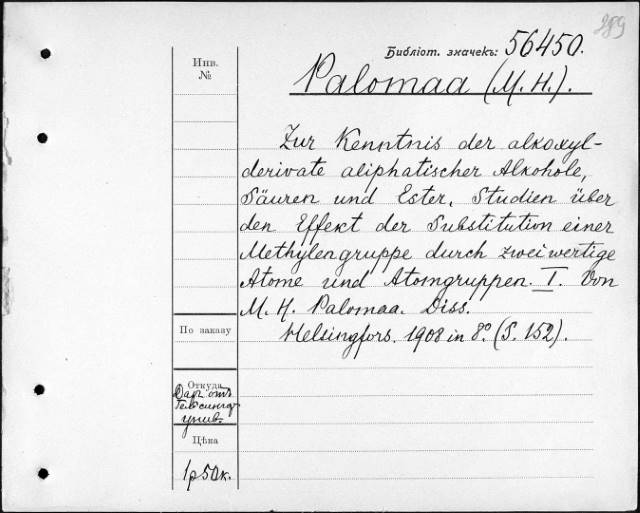 389
Библіот. значекъ: 56450.
Инв.
№
Palomaa (M. H.).
Zur Kenntnis der alkoxyl-
derivate aliphatischer Alkohole,
Säuren und Ester. Studien über
den Effekt der Substitution einer
Methylengruppe durch zweiwertige
Atome und Atomgruppen. I. Von
M. H. Palomaa. Diss.
Helsingfors. 1908 in 8º. (S. 152).
По заказу
Откуда
Даръ отъ
Гельсингф.
унив.
Цѣна
1р50к.